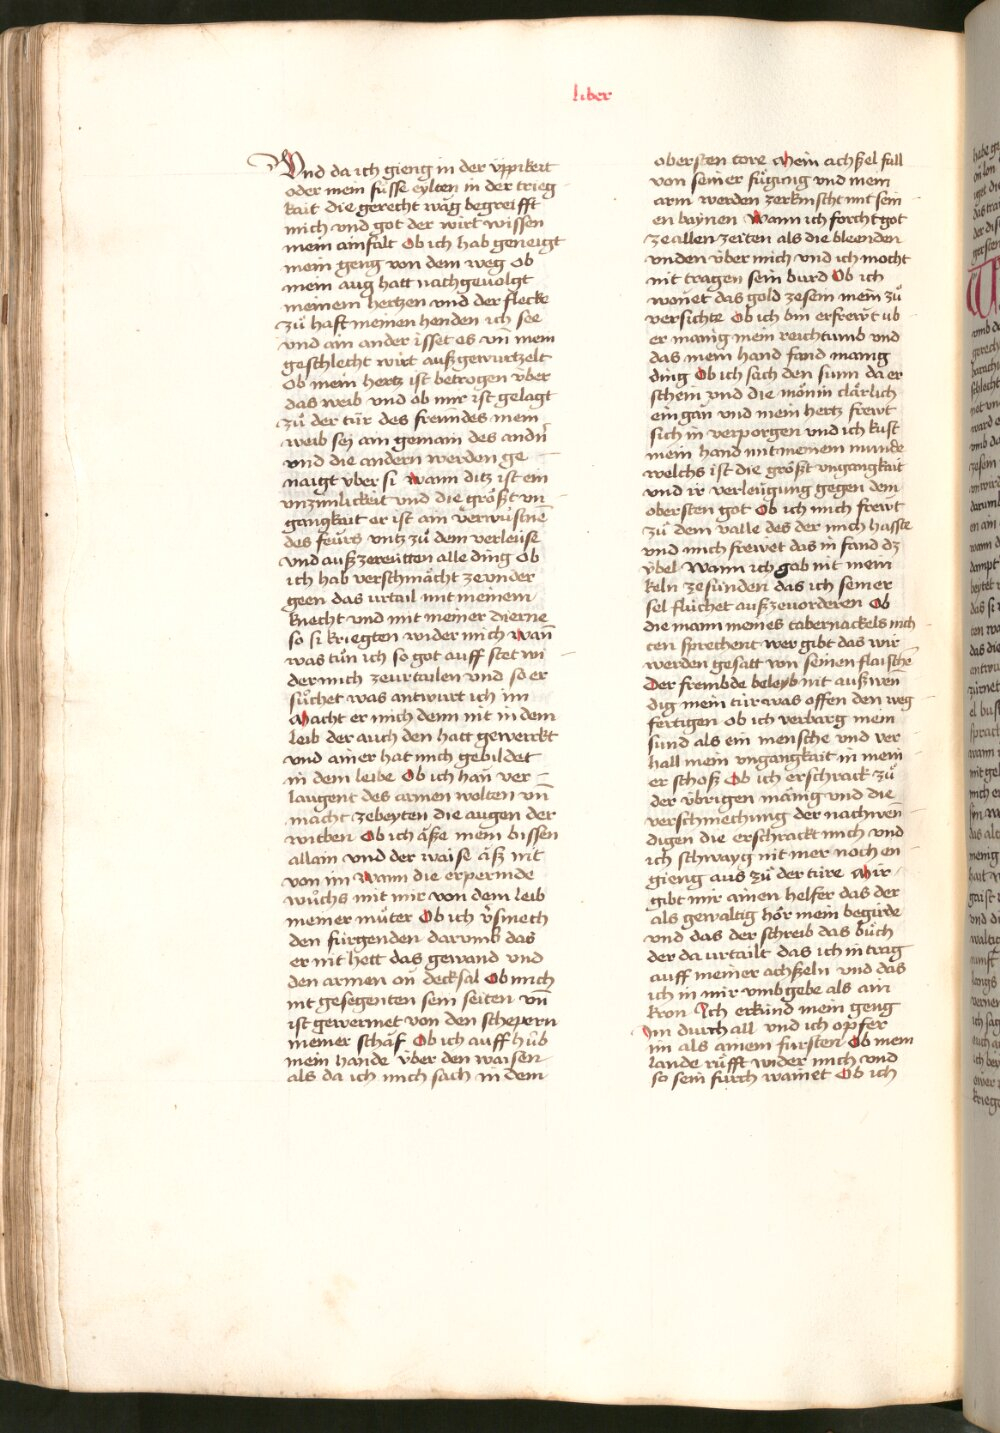 liber
Vnd da ich gieng in der üppikeit
oder mein füsse eylten in der trieg
kait die gerecht wäg begreifft
mich vnd got der wirt wissen
mein ainfalt Ob ich hab geneigt
mein geng von dem weg Ob
mein aug hatt nachgeuolgt
meinem hertzen vnd der flecke
zů haft meinen henden ich see
vnd ain ander isset es vn̄ mein
geschlecht wirt außgewurtzelt
Ob mein hertz ist betrogen v̈ber
das weib vnd ob mir ist gelagt
zů der tür des freündes mein
weib sej ain gemain des andn̄
vnd die andern werden ge
naigt vber si wann ditz ist ein
vnzimlickeit vnd die größt vn
gangkait er ist ain verwüstnē
des feürs vntz zů dem verleuse
vnd außzereütten alle ding Ob
ich hab verschmächt ze vnder
geen das vrtail mit meinem
knecht vnd mit meiner dierne
so si kriegten wider mich wan̄
was tůn ich so got auff stet wi
der mich zeurtailen vnd so er
sůchet was antwurt ich im
Macht er mich denn nit in dem
leib der auch den hatt gewerckt
vnd ainer hat mich gebildet
in dem leibe Ob ich han ver
laugent des armen wolten vn̄
macht zebeyten die augen der
witben Ob ich äße mein bissen
allain vnd der waise äß nit
von im Wann die erpermde
wůchs mit mir von dem leib
meiner můter Ob ich v̈smech
den fürgenden darumb das
er nit hett das gewand vnd
den armen on decksal Ob mich
nit gesegenten sein seiten vn̄
ist gewermet von den schepern
meiner schäf Ob ich auff hůb
mein hande v̈ber den waisen
als da ich mich sach in dem
obersten tore Mein achßel fall
von seiner fügung vnd mein
arm werden zerknischt mit sein
en baynen Wann ich forcht got
ze allen zeiten als die bleenden
vnden v̈ber mich vnd ich mocht
nit tragen sein burd Ob ich
wenet das gold zesein mein zů
versichte Ob ich bin erfrewt üb
er manig mein reichtumb vnd
das mein hand fand manig
ding Ob ich sach den sunn da er
schein vnd die mönin clärlich
eingan vnd mein hertz frewt
sich in verporgen vnd ich kust
mein hand mit meinem munde
welchs ist die größt vngangkait
vnd ir verleugung gegen dem
obersten got Ob ich mich frewt
zů dem valle des der mich hasste
vnd mich frewet das in fand dz
v̈bel Wann ich gab nit mein
keln zesünden das ich seiner
sel fluchet auß zeuorderen Ob
die mann meines tabernackels nich
ten sprechent wer gibt das wir
werden gesatt von seinen flaischē
Der frembde beleyb nit außwen
dig mein tür was offen den weg
fertigen Ob ich verbarg mein
sünd als ein mensche vnd ver
hall mein vngangkait in mein
er schoß Ob ich erschrack zů
der v̈brigen mänig vnd die
verschmechung der nachwen
digen die erschrackt mich vnd
ich schwayg nit mer noch en
gieng aus zů der türe Wir
gibt mir ainen helfer das der
als gewaltig hör mein begirde
vnd das der schreib das bůch
der da vrtailt das ich in trag
auff meiner achßeln vnd das
ich in mir vmbgebe als ain
kron Ich erkünd mein geng
im durch all vnd ich opfer
im als ainem fürsten Ob mein
lande růfft wider mich vnd
so sein fürch wainet Ob ich